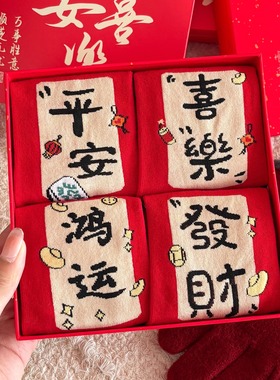 喜
安
万事胜意
平安
喜樂
鸿运
發財
發